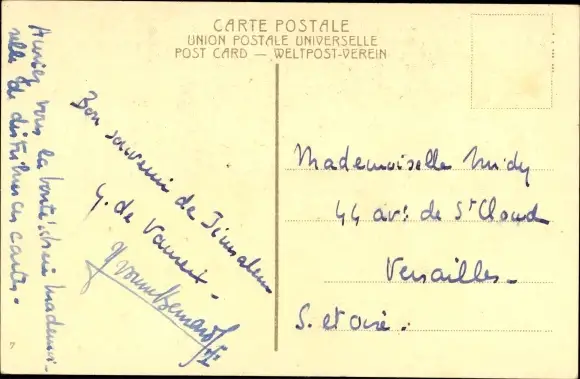 CARTE POSTALE
UNION POSTALE UNIVERSELLE
POST CARD — WELTPOST-VEREIN
Auriez vous la bonté chère Mademoi-
selle de distribuer ces cartes.
Bon souvenir de Jérusalem
G. de
Mademoiselle
44 av. de St Cloud
Versailles.
S. et Oise.